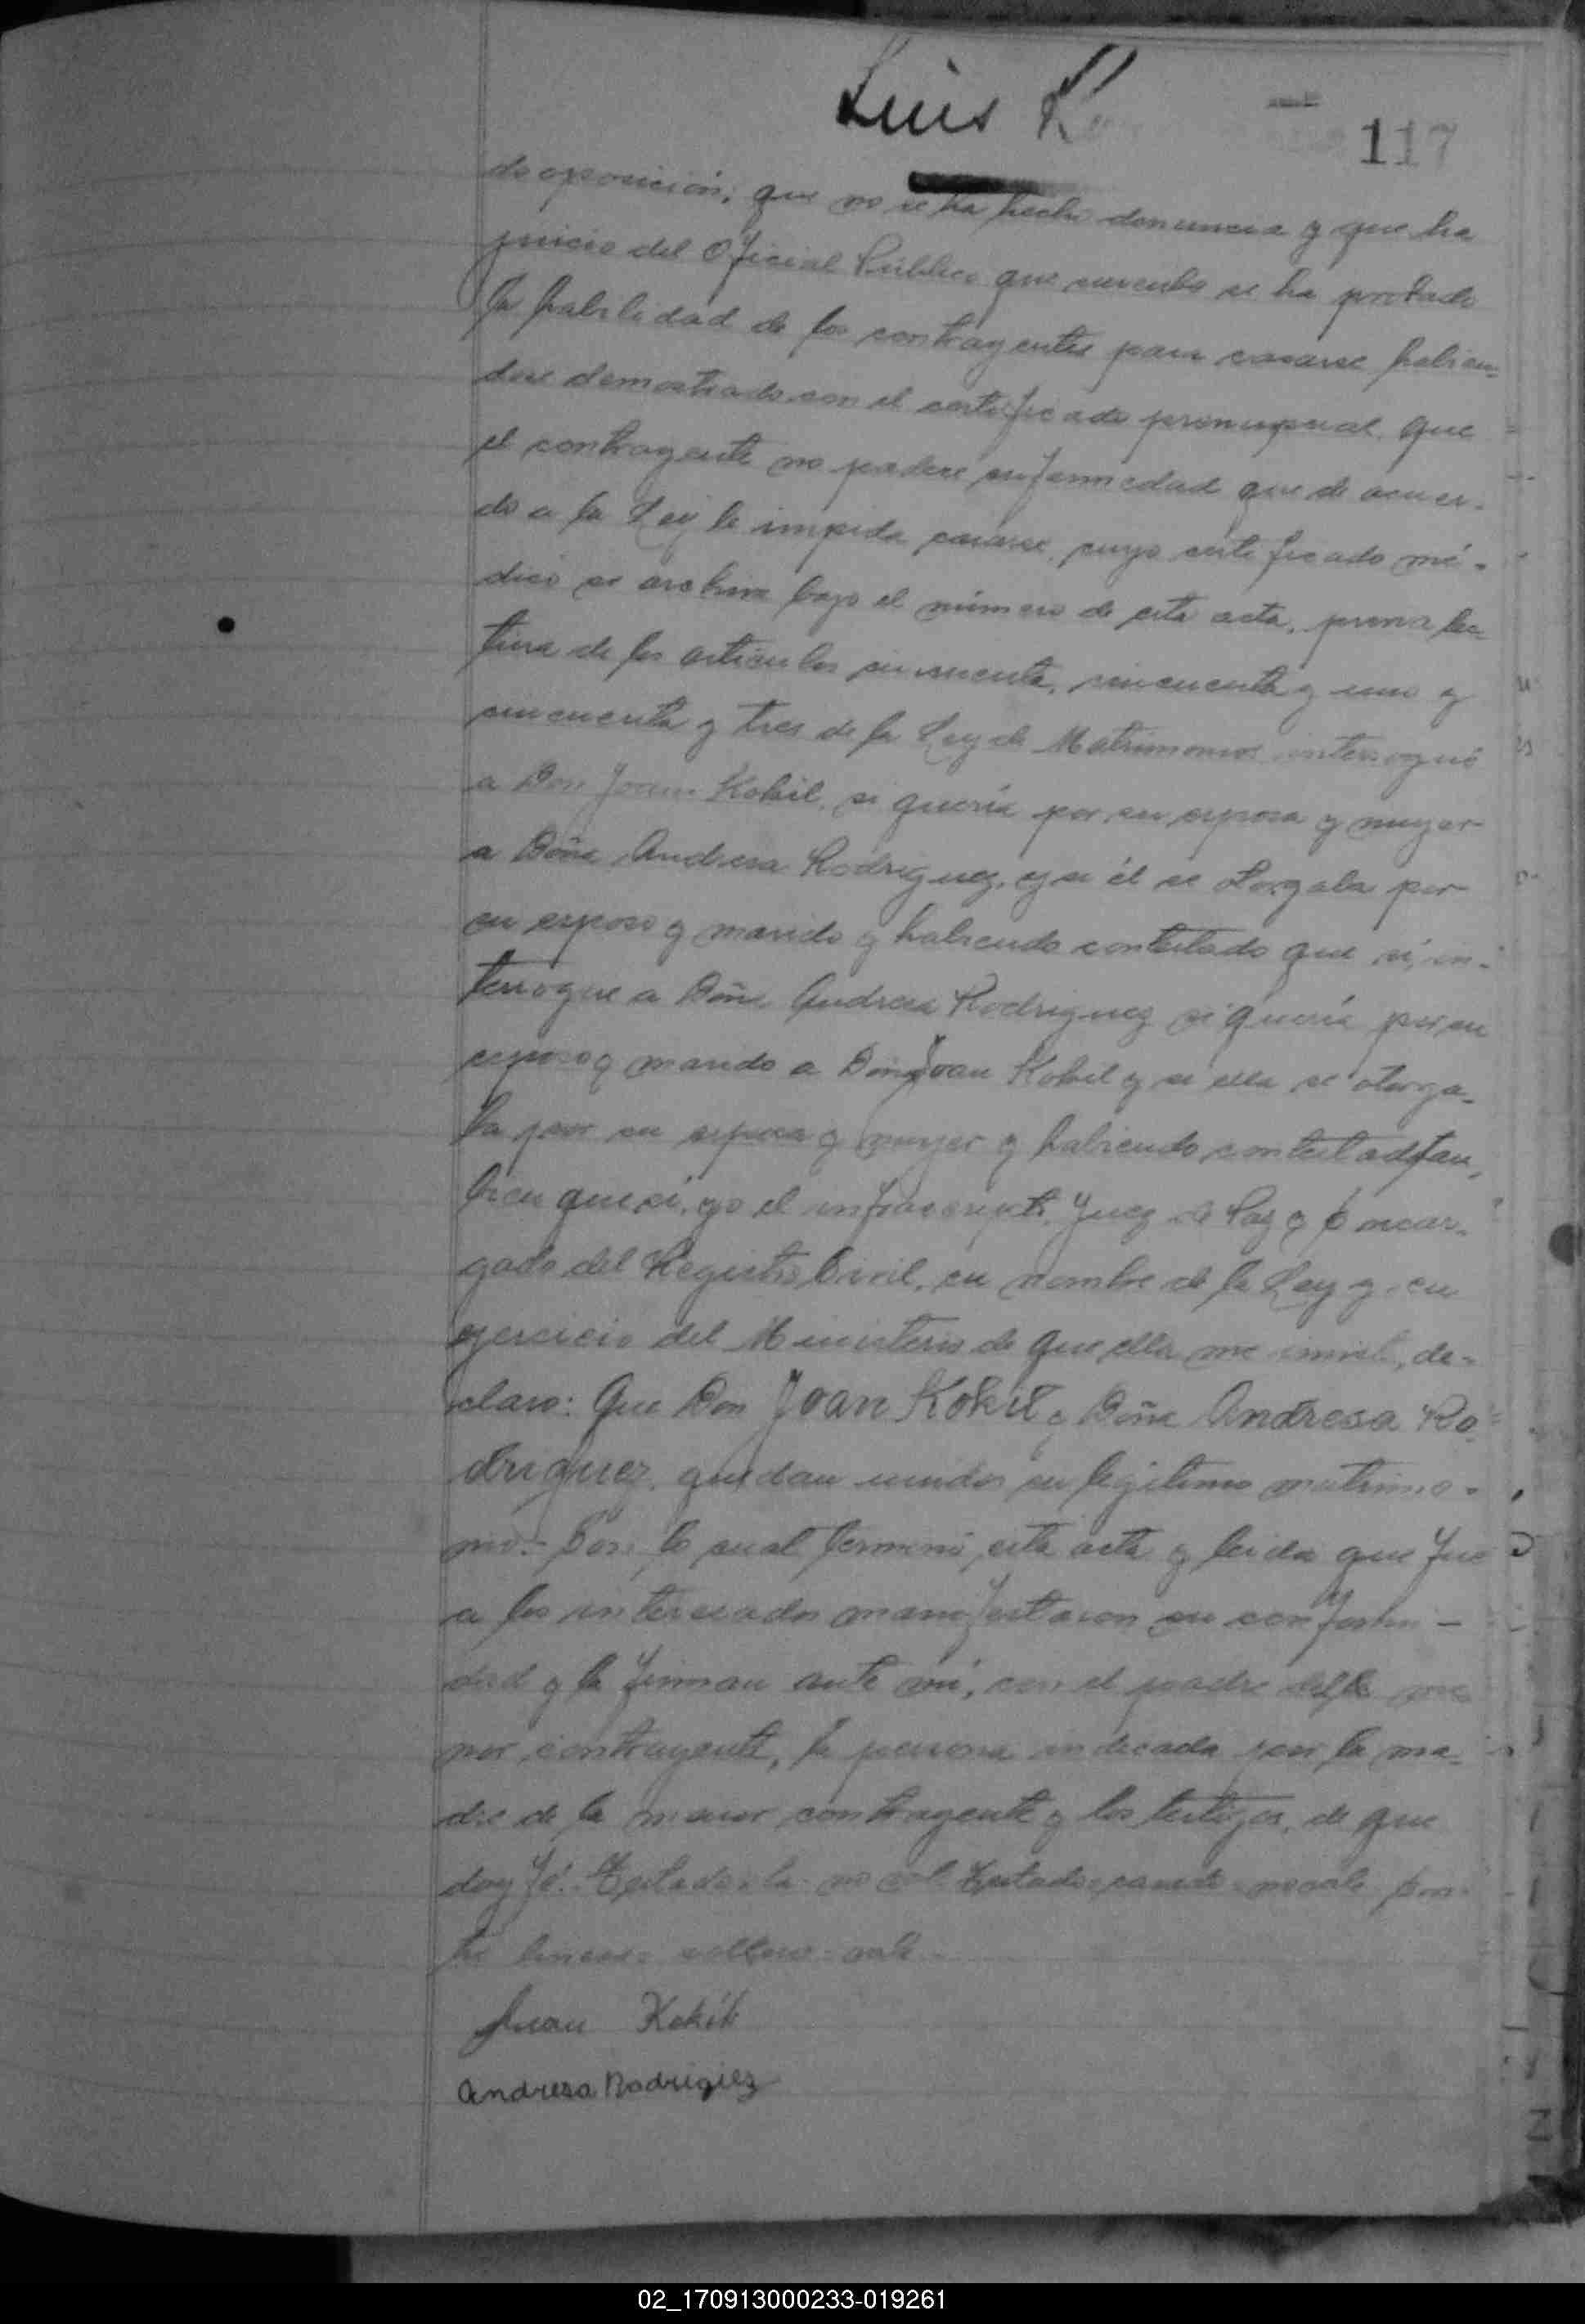 Luis K
117
de oposición; que no se ha hecho denuncia y que ha
juicio del Oficial Público que suscribe se ha probado
la habilidad de los contrayentes para casarse habien-
dose demostrado con el certificado prenupcial que
el contrayente no padece enfermedad que de acuer-
do a la Ley le impida casarse, cuyo certificado mé-
dico se archiva bajo el número de esta acta, previa lec-
tura de los artículos cincuenta, cincuenta y uno y
cincuenta y tres de la Ley de Matrimonios interrogué
a Don Joan Kokil, si quería por su esposa y mujer
a Doña Andresa Rodriguez, y si él se otorgaba por
su esposo y marido y habiendo contestado que sí, in-
terrogue a Doña Andresa Rodriguez si quería por su
esposo y marido a Don Joan Kokil y si ella se otorga-
ba por su esposa y mujer y habiendo contestado tam-
bien que sí, yo el infrascripto, Juez de Paz y Encar-
gado del Registro Civil, en nombre de la Ley y en
ejercicio del Ministerio de que ella me inviste, de-
claro: Que Don Joan Kokil y Doña Andresa Ro-
driguez, quedan unidos en legítimo matrimo-
nio.- Con lo cual terminó esta acta y leida que fue
a los interesados manifestaron su conformi-
dad y la firman ante mí, con el padre del me-
nor contrayente, la persona indicada por la ma-
dre de la menor contrayente y los testigos, de que
doy fé. Testado: la no vale Testado: no vale
Juan Kokil
Andresa Rodrigiez
02_170913000233-019261